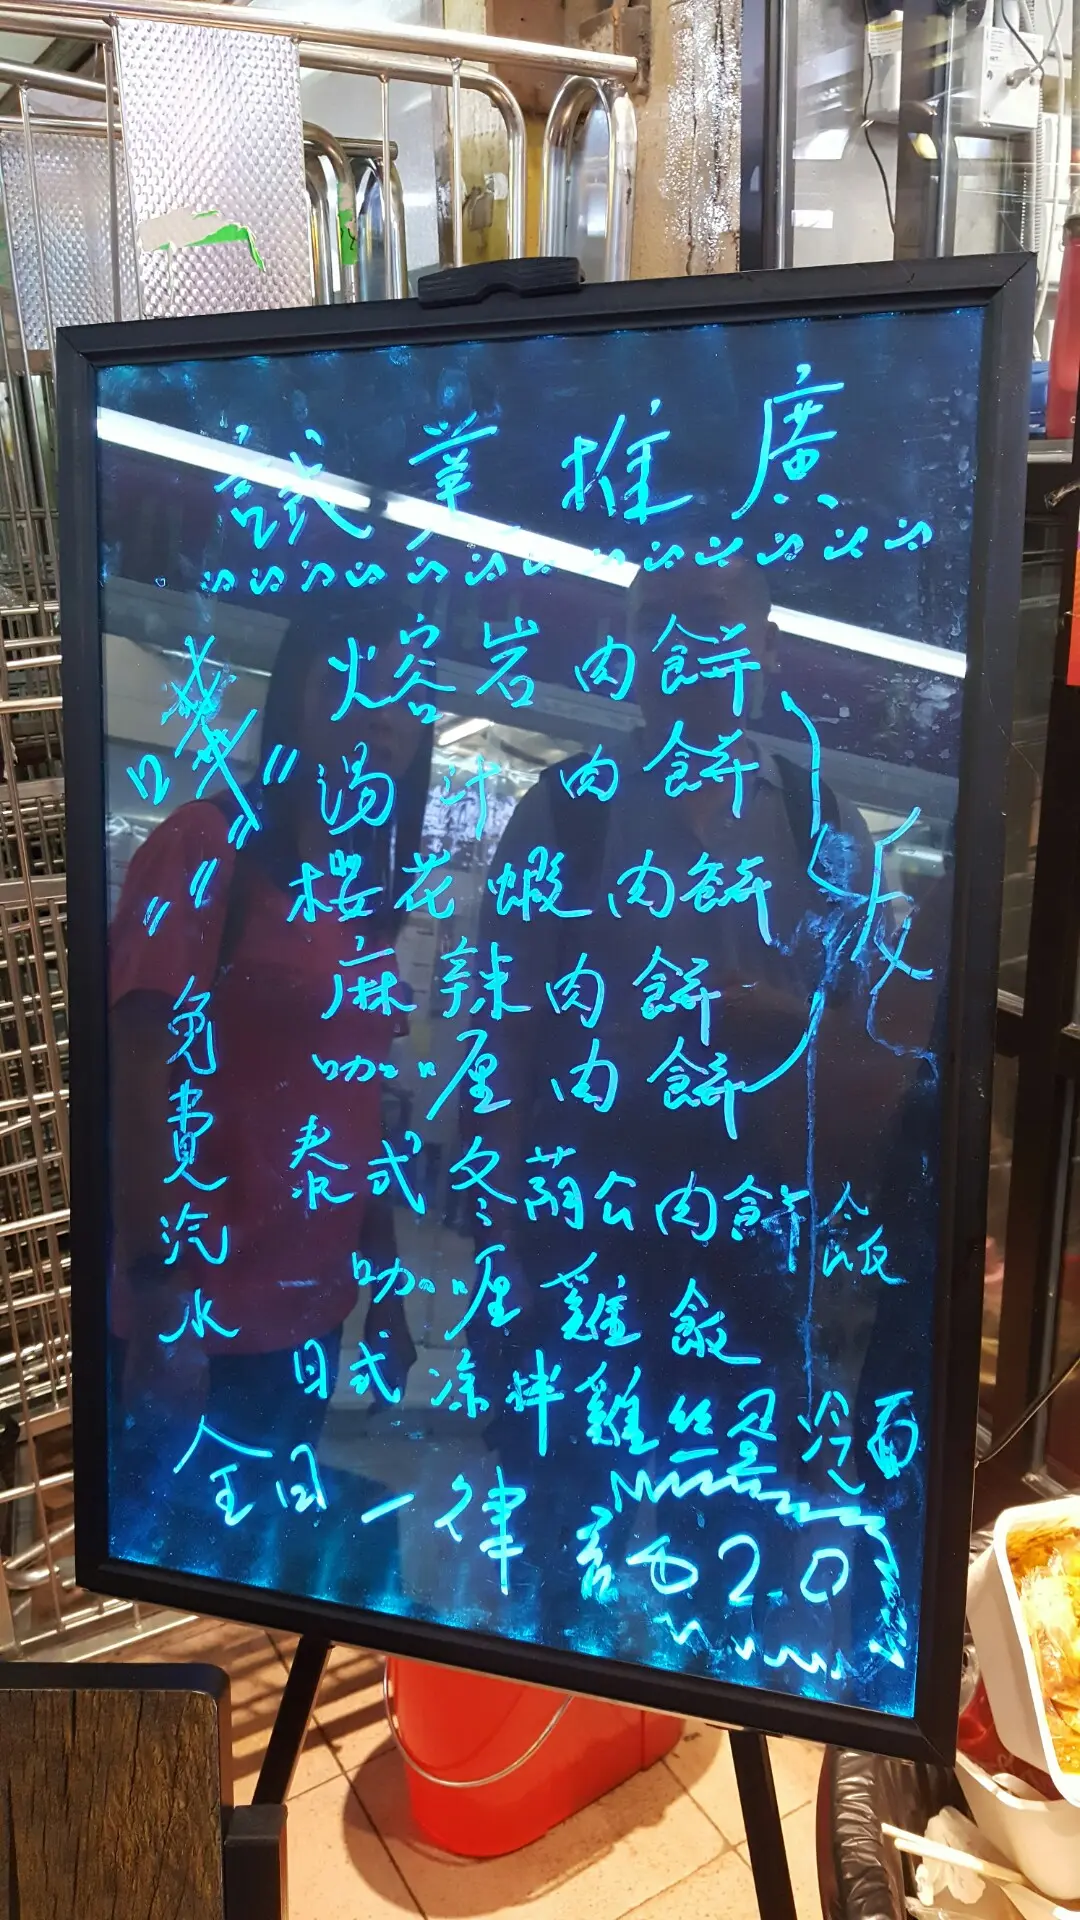 試業推廣
熔岩肉餅
湯汁肉餅
櫻花蝦肉餅
麻辣肉餅
咖喱肉餅
飯
泰式冬蔭公肉餅飯
咖喱雞飯
日式涼拌雞絲冷面
免費汽水
全日一律
20